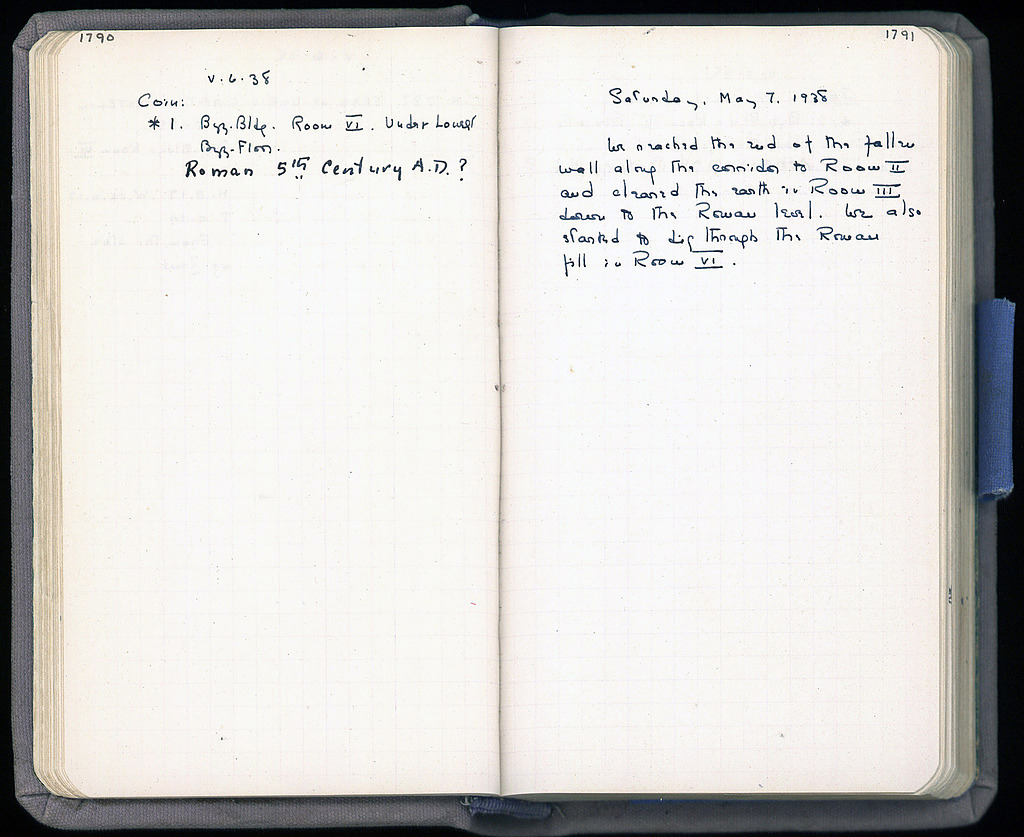 1790
V.6.38
Coin:
* 1. Byz. Bldg. Room VI. Under Lower
Byz. Floor.
Roman 5th Century A.D.?
1791
Saturday, May 7, 1938
We reached the end of the fallen
wall along the corridor to Room II
and cleaned the earth in Room III
down to the Roman level. We also
started to dig through the Roman
fill in Room VI.